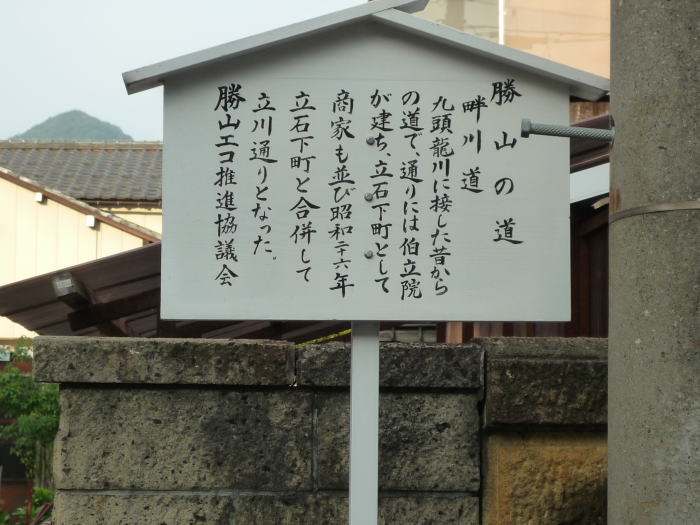 勝山の道
畔川道
九頭龍川に接した昔から
の道で、通りには伯立院
が建ち、立石下町として
商家も並び昭和二十六年
立石下町と合併して
立川通りとなった。
勝山エコ推進協議会